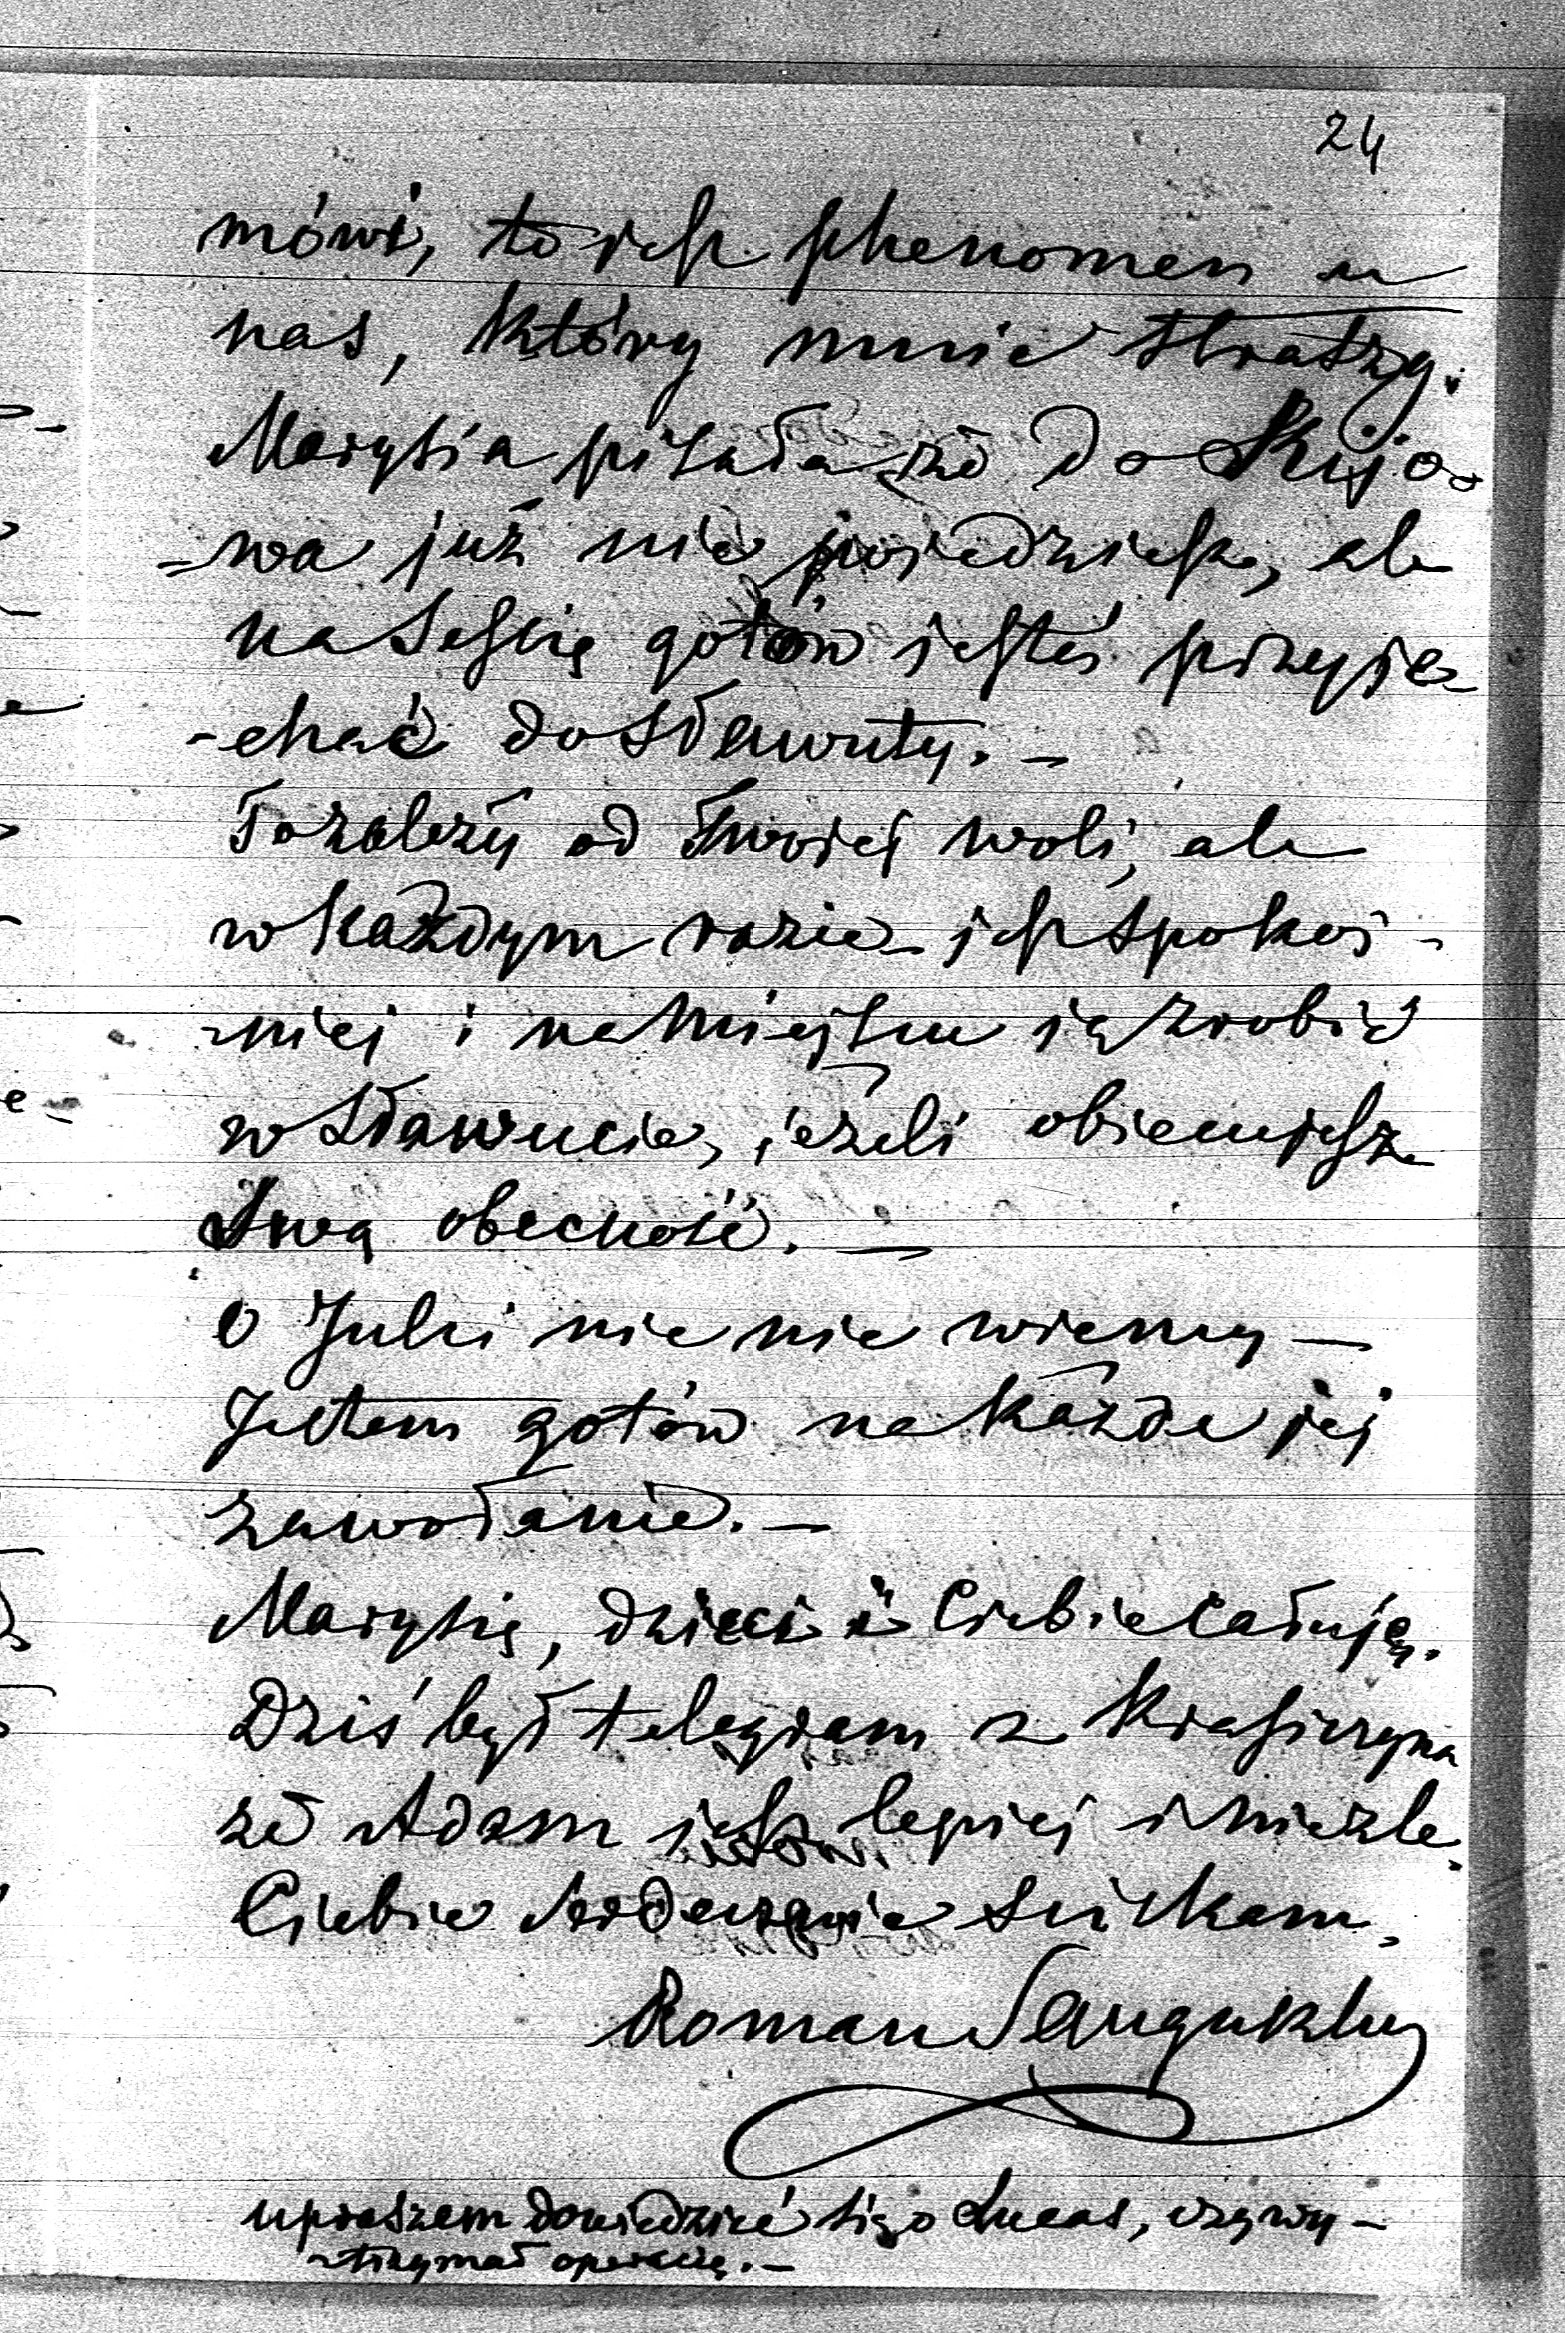 24
mówi, to jest phenomen u
nas, który mnie straszy.
Marysia pisała że do Kijo-
-wa już nie pojedziesz, ale
na Sessię gotów jesteś przyje-
-chać do Sławuty. —
To zależy od Twojej woli, ale
w każdym razie jest spokoj-
-niej i na miejscu ją zrobić
w Sławucie, jeżeli obiecujesz
Swą obecność. —
O Julci nic nie wiemy —
Jestem gotów na każde jej
zawołanie. —
Marysię, dzieci i Ciebie całuję.
Dziś był telegram z Krasiczyna
że Adam jest lepiej i nieźle.
Ciebie serdecznie ściskam.
Roman Sanguszko
upraszam dowiedzieć się o Lucas, czy wy-
-trzymał operację. —